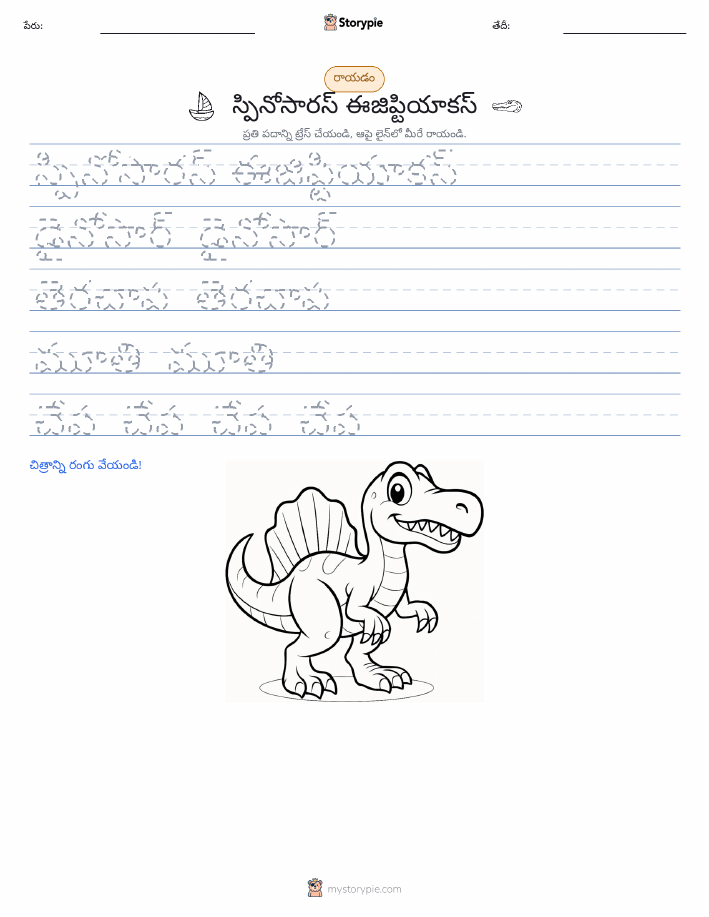 పేరు:
Storypie
తేదీ:
రాయడం
స్పినోసారస్ ఈజిప్టియాకస్
ప్రతి పదాన్ని ట్రేస్ చేయండి, ఆపై లైన్‌లో మీరే రాయండి.
స్పినోసారస్ ఈజిప్టియాకస్
డైనోసార్ డైనోసార్
తెరచాప తెరచాప
మూతి మూతి
చేప చేప చేప చేప
చిత్రాన్ని రంగు వేయండి!
mystorypie.com